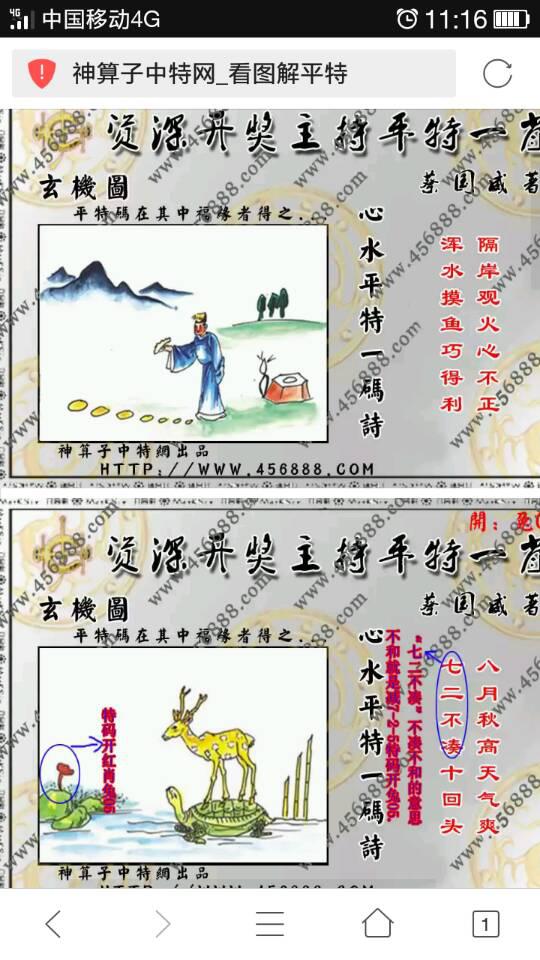 4G 中国移动4G 11:16
神算子中特网_看图解平特
资深开奖主持平特一
蔡国威著
玄機圖
平特碼在其中福缘者得之.
心水平特一碼詩
隔岸观火心不正
浑水摸鱼巧得利
神算子中特網出品
HTTP://WWW.456888.COM
www.456888.com
開:
资深开奖主持平特一
蔡国威著
玄機圖
平特碼在其中福缘者得之.
心水平特一碼詩
八月秋高天气爽
七二不凑十回头
"七二不凑"不凑不和的意思
不和就是减7-2=5特码开兔05
特码开红肖兔05
神算子中特網出品
HTTP://WWW.456888.COM
1